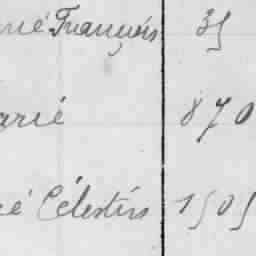 François 35
arié 870
é Célestin 1505